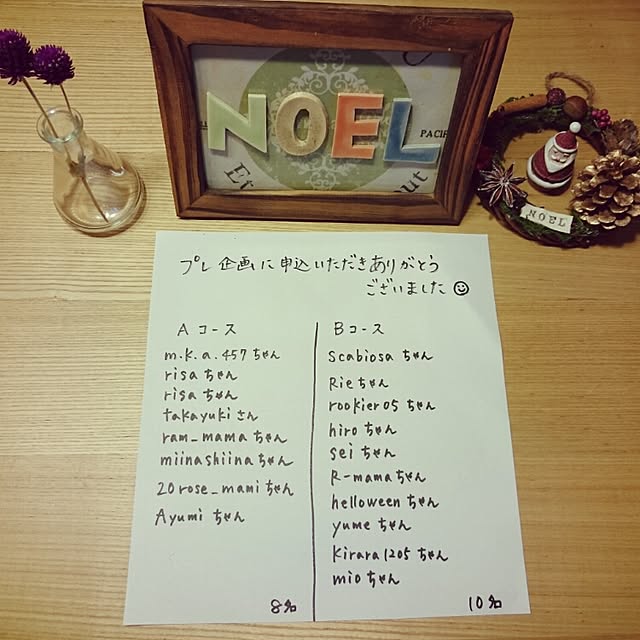 NOEL
PACIF
Et
out
NOEL
プレ企画に申込いただきありがとう
ございました
Aコース
m.k.a.457ちゃん
risaちゃん
risaちゃん
takayukiさん
ram_mamaちゃん
miinashiinaちゃん
20rose_mamiちゃん
Ayumiちゃん
8名
Bコース
Scabiosaちゃん
Rieちゃん
rookier05ちゃん
hiroちゃん
seiちゃん
R-mamaちゃん
helloweenちゃん
yumeちゃん
Kirara1205ちゃん
mioちゃん
10名